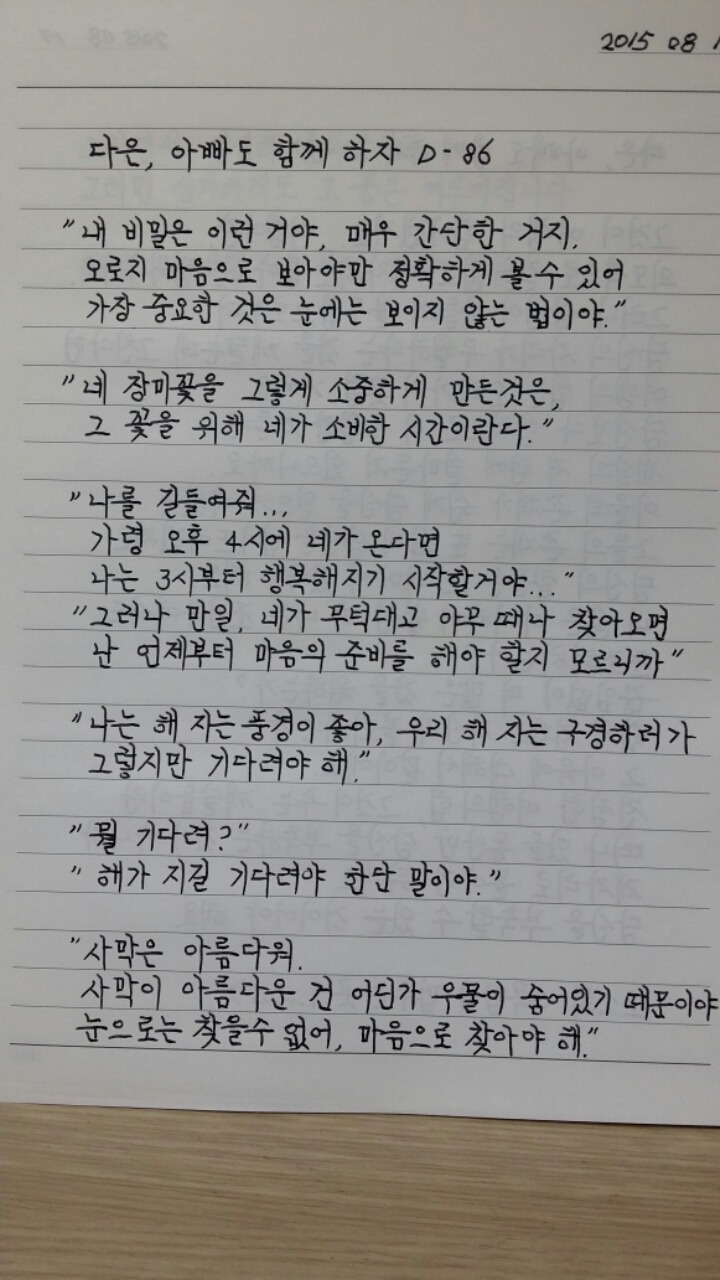 2015 08 1
다은, 아빠도 함께 하자 D-86
"내 비밀은 이런 거야, 매우 간단한 거지.
오로지 마음으로 보아야만 정확하게 볼 수 있어
가장 중요한 것은 눈에는 보이지 않는 법이야."
"네 장미꽃을 그렇게 소중하게 만든것은,
그 꽃을 위해 네가 소비한 시간이란다."
"나를 길들여줘...
가령 오후 4시에 네가 온다면
나는 3시부터 행복해지기 시작할거야..."
"그러나 만일, 네가 무턱대고 아무 때나 찾아오면
난 언제부터 마음의 준비를 해야 할지 모르니까"
"나는 해 지는 풍경이 좋아, 우리 해 지는 구경하러 가
그렇지만 기다려야 해."
"뭘 기다려?"
"해가 지길 기다려야 한단 말이야."
"사막은 아름다워.
사막이 아름다운 건 어딘가 우물이 숨어있기 때문이야
눈으로는 찾을수 없어, 마음으로 찾아야 해."